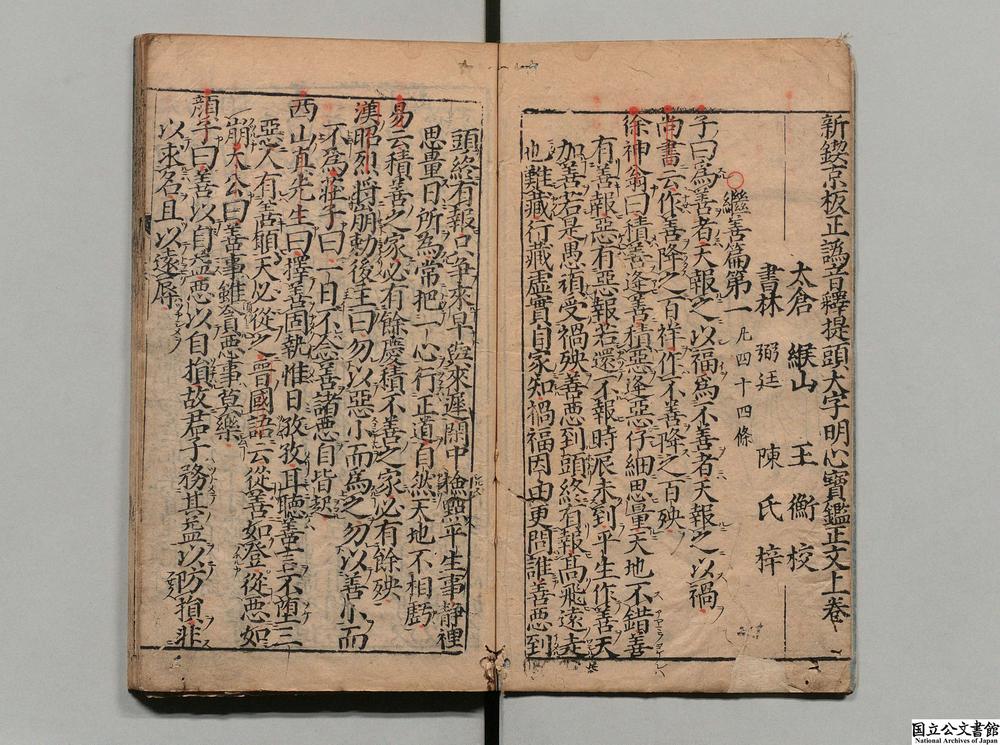 新鍥京板正譌音釋提頭大字明心寶鑑正文上卷
太倉 緱山 王衡 校
書林 弼廷 陳氏 梓
繼善篇第一 凡四十四條
子曰爲善者天報之以福爲不善者天報之以禍
尚書云作善降之百祥作不善降之百殃
徐神翁曰積善逢善積惡逢惡仔細思量天地不錯善
有善報惡有惡報若還不報時辰未到平生作善天
加善若是愚頑受禍殃善惡到頭終有報高飛遠走
也難藏行藏虛實自家知禍福因由更問誰善惡到
頭終有報只爭來早與來遲閑中檢點平生事靜裡
思量日所為常把一心行正道自然天地不相虧
易云積善之家必有餘慶積不善之家必有餘殃
漢昭烈將崩勅後主曰勿以惡小而爲之勿以善小而
不爲莊子曰一日不念善諸惡自皆起
西山真先生曰擇善固執惟日孜孜耳聽善言不堕三
惡人有善願天必從之晉國語云從善如登從惡如
崩太公曰善事雖貪惡事莫樂
顔子曰善以自益惡以自損故君子務其益以防損非
以求名且以遠辱
国立公文書館
National Archives of Japan